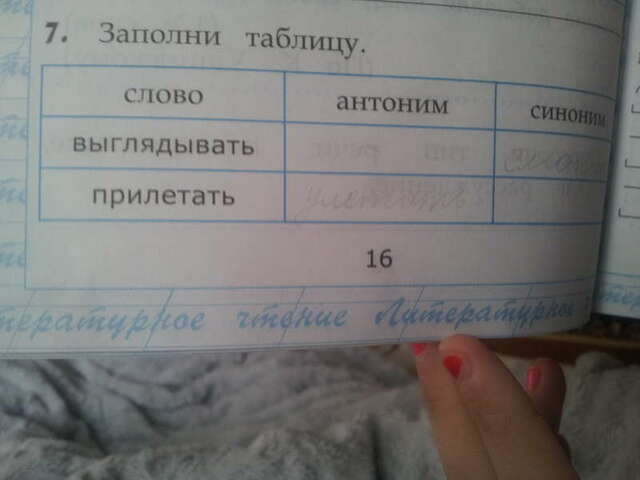 7. Заполни таблицу.
слово антоним синоним
выглядывать
прилетать улетать
16
тературное чтение Литературное